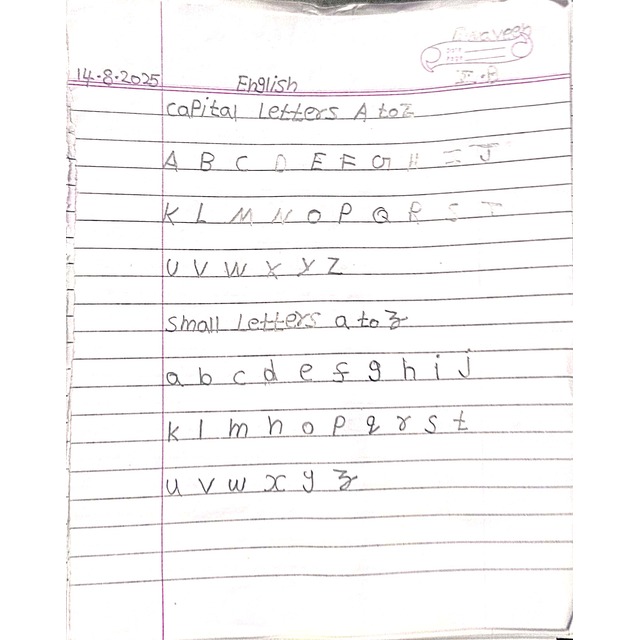 Praveen
14.8.2025 English
Capital Letters A to Z
A B C D E F G H I J
K L M N O P Q R S T
U V W X Y Z
Small Letters a to z
a b c d e f g h i j
k l m n o p q r s t
u v w x y z